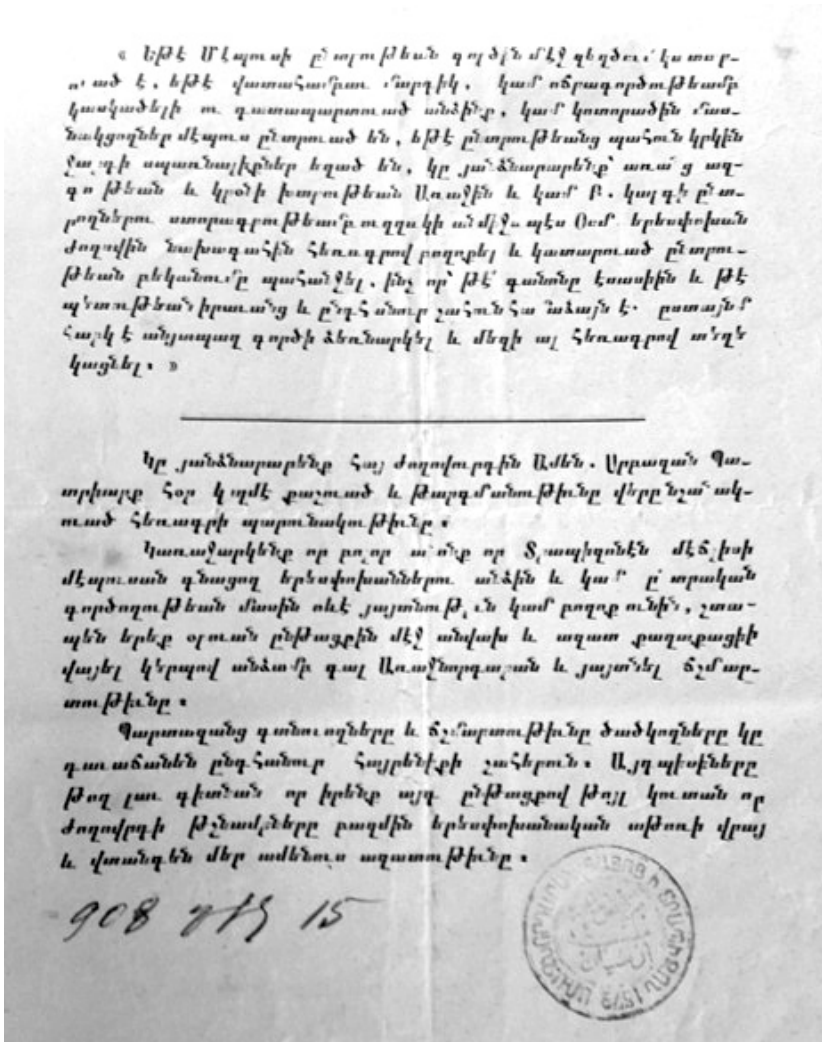 « Եթէ Մէպուսի ընտրութեան գործին մէջ զեղծում կատար-
ուած է, եթէ վատահամբաւ մարդիկ, կամ ոճրագործութեամբ
կասկածելի ու դատապարտուած անձինք, կամ կոտորածին մաս-
նակցողներ մէպուս ընտրուած են, եթէ ընտրութեանց պահուն կրկին
ջարդի սպառնալիքներ եղած են, կը յանձնարարենք՝ առանց ազ-
գութեան և կրօնի խտրութեան Առաջին և կամ Բ. կարգի ընտ-
րողներու ստորագրութեամբ ուղղակի անմիջապէս Օսմ. երեսփոխան
ժողովին նախագահին հեռագրով բողոքել և կատարուած ընտրու-
թեան բեկանումը պահանջել, ինչ որ՝ թէ՛ գանոնը էսասիին և թէ
պետութեան իրաւանց և ընդհանուր շահուն համաձայն է. ըստայնմ
հարկ է անյապաղ գործի ձեռնարկել և մեզի ալ հեռագրով տեղե
կացնել. »
Կը յանձնարարենք հայ ժողովուրդին Ամեն. Սրբազան Պա-
տրիարք հօր կողմէ քաշուած և թարգմանութիւնը վերը նշանակ-
ուած հեռագրի պարունակութիւնը.
Կառաջարկենք որ բոլոր անոնք որ Տրապիզոնէն մէճլիսի
մէպուսան գնացող երեսփոխաններու անձին և կամ ընտրական
գործողութեան մասին ոևէ յայտնութիւն կամ բողոք ունին, շտա-
պեն երեք օրուան ընթացքին մէջ անվախ և ազատ քաղաքացիի
վայել կերպով անձամբ գալ Առաջնորդարան և յայտնել ճշմար-
տութիւնը.
Պարտազանց գտնուողները և ճշմարտութիւնը ծածկողները կը
դաւաճանեն ընդհանուր հայրենիքի շահերուն. Այդպիսիները
թող լաւ գիտնան որ իրենք այդ ընթացքով թոյլ կուտան որ
ժողովրդի թշնամիները բազմին երեսփոխանական աթոռի վրայ
և վտանգեն մեր ամենուս ազատութիւնը.
908 15
1573